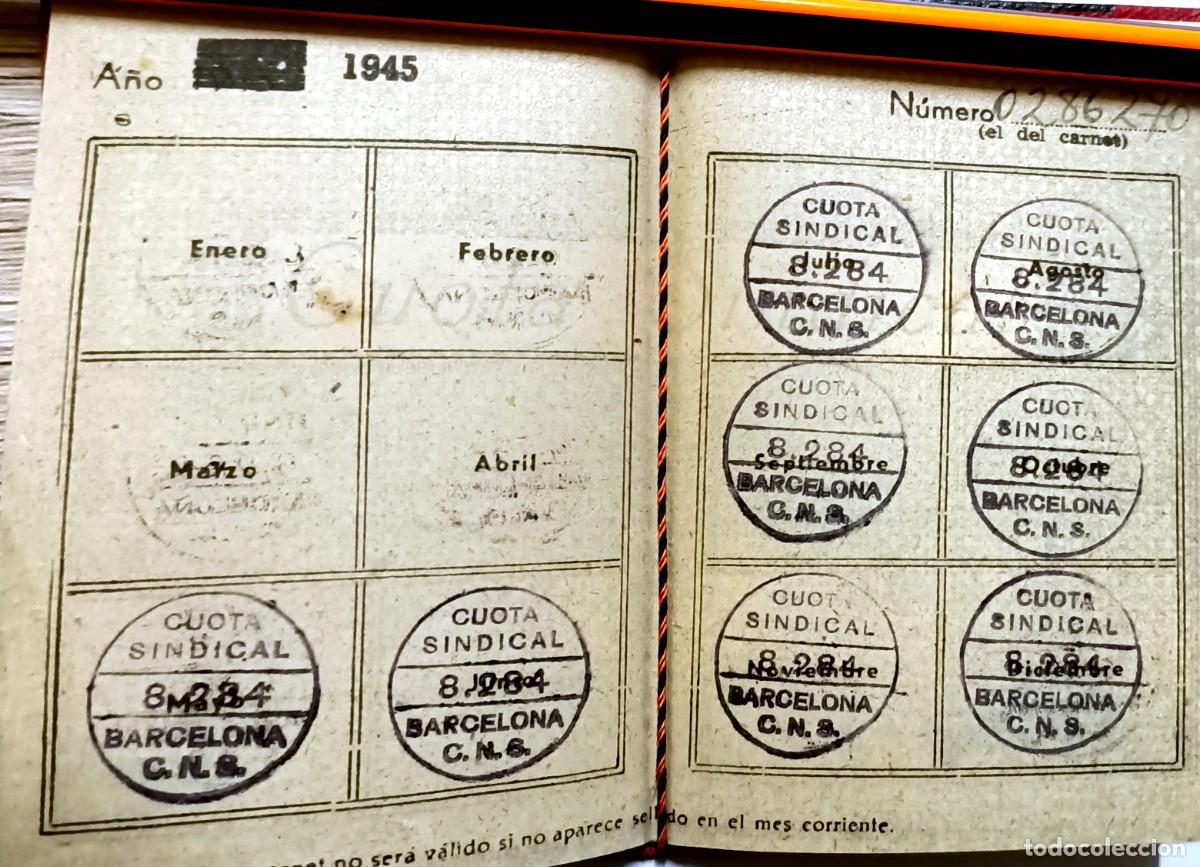 Año 1945
Número 0286270
(el del carnet)
Enero Febrero
Marzo Abril
CUOTA
SINDICAL
8.284
Mayo
BARCELONA
C.N.S.
CUOTA
SINDICAL
8.284
Junio
BARCELONA
C.N.S.
CUOTA
SINDICAL
Julio
8.284
BARCELONA
C.N.S.
CUOTA
SINDICAL
Agosto
8.284
BARCELONA
C.N.S.
CUOTA
SINDICAL
8.284
Septiembre
BARCELONA
C.N.S.
CUOTA
SINDICAL
8.284
Octubre
BARCELONA
C.N.S.
CUOTA
SINDICAL
8.284
Noviembre
BARCELONA
C.N.S.
CUOTA
SINDICAL
8.284
Diciembre
BARCELONA
C.N.S.
no será válido si no aparece sellado en el mes corriente.
todocoleccion